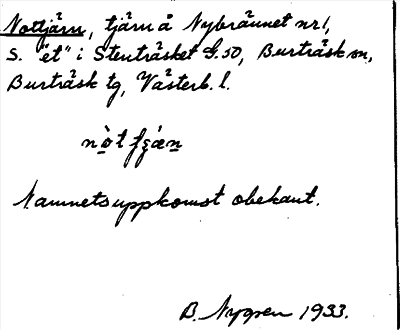 Nottjärn, tjärn å Nybrännet nr 1,
S. "et" i Stenträsket G.50, Burträsk sn,
Burträsk tg, Västerb. l.
Namnets uppkomst obekant.
B. Nygren 1933.